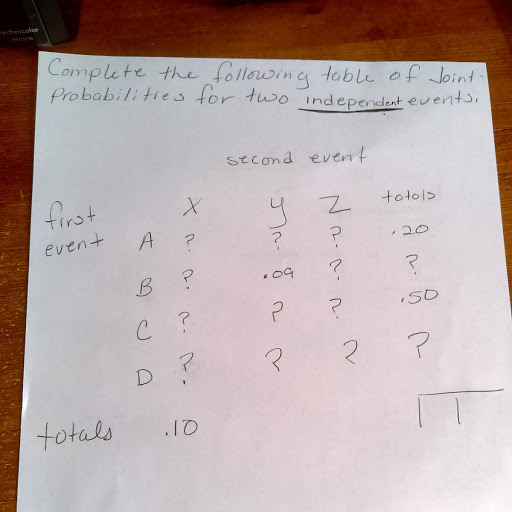 technicolor
Complete the following table of Joint
Probabilities for two independent events.
second event
first event
X Y Z totals
A ? ? ? .20
B ? .09 ? ?
C ? ? ? .50
D ? ? ? ?
totals .10